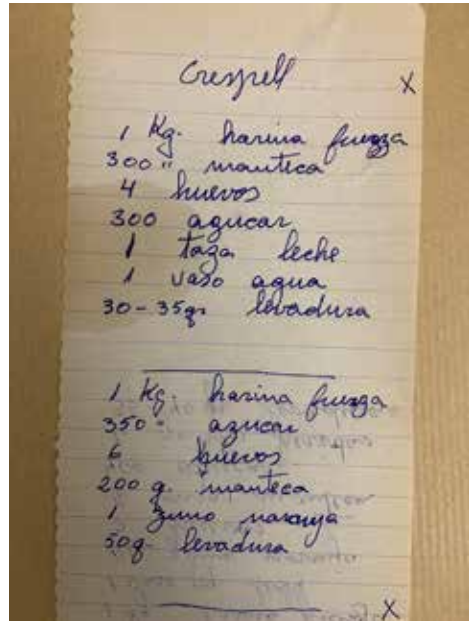 Crespell X
1 Kg. harina fuerza
300 " manteca
4 huevos
300 azucar
1 taza leche
1 vaso agua
30-35gr levadura
1 Kg. harina fuerza
350 " azucar
6 huevos
200 g. manteca
1 zumo naranja
50g. levadura
X